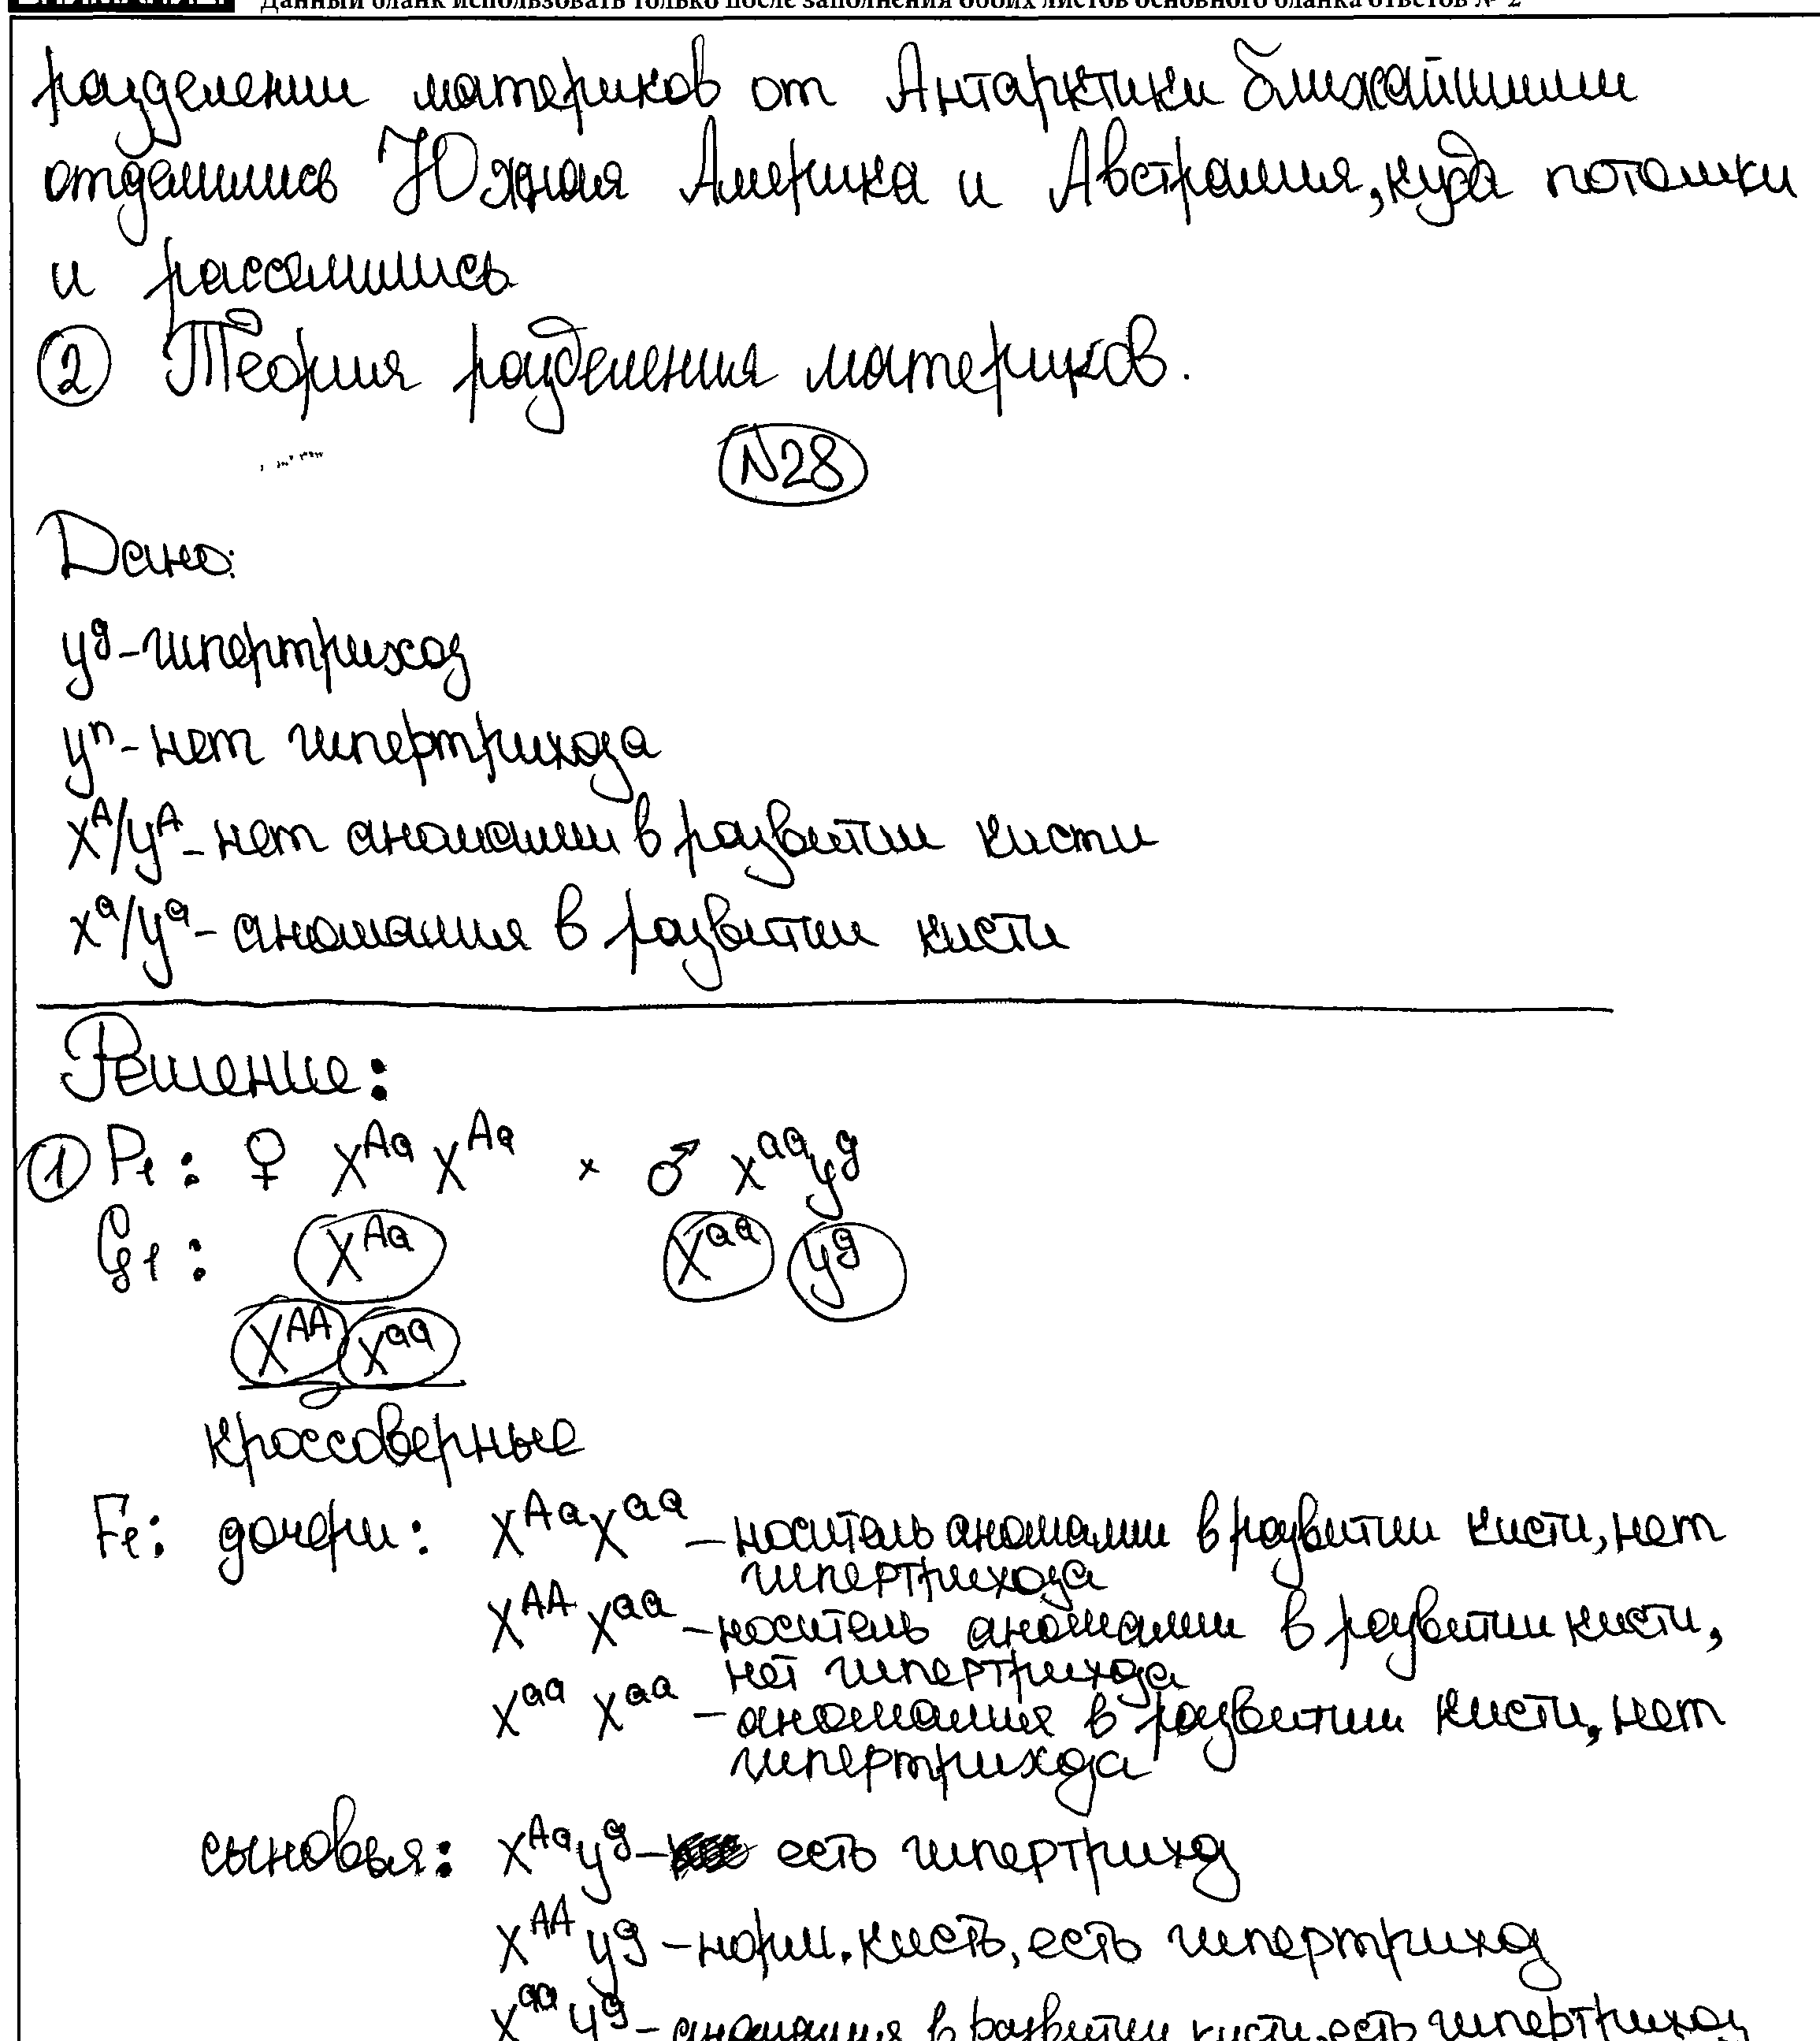 Данный бланк использовать только после заполнения обоих листов основного бланка ответов № 2
разделении материков от Антарктики ближайшими
отделились Южная Америка и Австралия, куда потомки
и расселились
② Теория разделения материков.
N28
Дано:
yᵍ - гипертрихоз
yⁿ - нет гипертрихоза
Xᴬ/yᴬ - нет аномалии в развитии кисти
xᵃ/yᵃ - аномалия в развитии кисти
Решение:
① P₁: ♀ Xᴬᵃ Xᴬᵃ × ♂ xᵃᵃyᵍ
G₁: Xᴬᵃ Xᵃᵃ yᵍ
Xᴬᴬ xᵃᵃ
кроссоверные
F₁: дочери: Xᴬᵃxᵃᵃ - носитель аномалии в развитии кисти, нет
гипертрихоза
Xᴬᴬ xᵃᵃ - носитель аномалии в развитии кисти,
нет гипертрихоза
xᵃᵃ xᵃᵃ - аномалия в развитии кисти, нет
гипертрихоза
сыновья: Xᴬᵃyᵍ - есть гипертрихоз
Xᴬᴬ yᵍ - норм. кисть, есть гипертрихоз
xᵃᵃ yᵍ - аномалия в развитии кисти, есть гипертрихоз